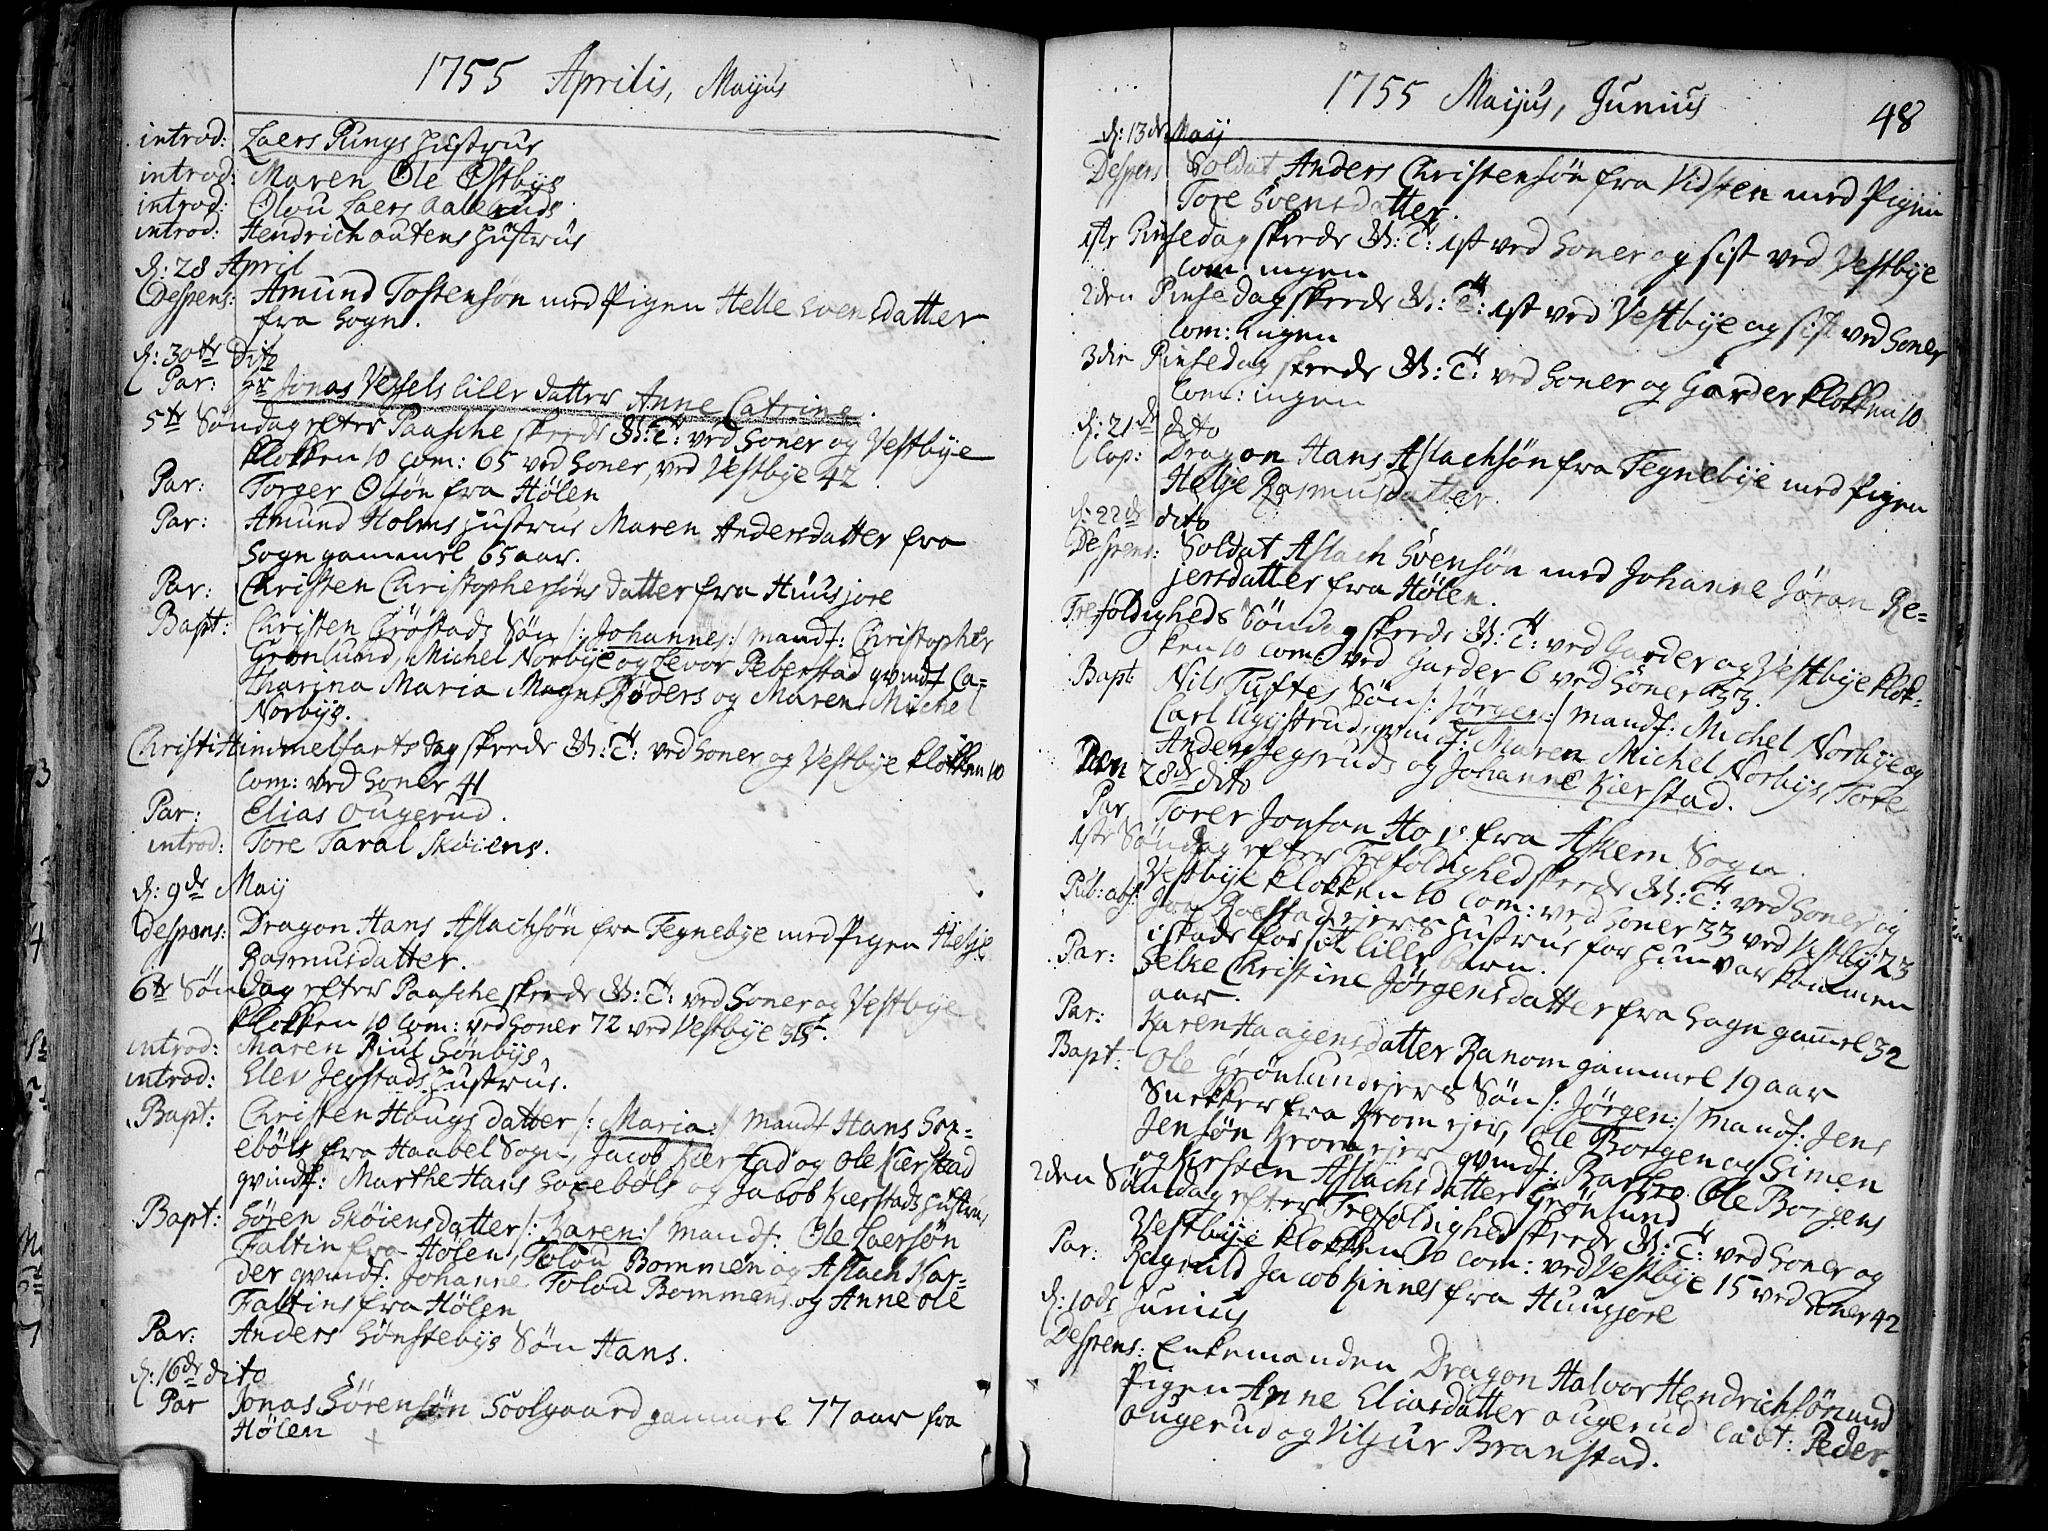 1755 Aprilis, Maijus
introd: Laers Rings Hustrue
introd: Maren Ole Østbÿs
introd: Olou Laers Aaleruds
introd: Hendrich autens Hustrue
d: 28 April
Despens: Amund Tostensøn med Pigen Helle Svensdatter
fra Sogn.
d: 30te Dito
Par: Hr Jonas Vessels lille datter Anne Catrine.
5te Søndag efter Paasche skeede G: T: ved Soner og Vestbÿe
klokken 10 Com: 65 ved Soner, ved Vestbÿe 42
Par: Torger Olsøn fra Hølen
Par: Amund Holms Hustrue Maren Andersdatter fra
Sogn gammel 65 aar.
Par: Christen Christophersøns datter fra Huusjore
Bapt: Christen Grøstads Søn /: Johannes :/ mandf: Christopher
Grønlund, Michel Norbÿe og Levor Peberstad qvindf: Ca=
tharina Maria Magns Røders og Maren Michel
Norbÿs.
Christi Himmelfarts dag skeede G: T: ved Soner og Vestbÿe klokken 10
Com: ved Soner 41
Par: Elias Ougerud.
introd: Tore Taral Skøiens.
d: 9de Maÿ
Despens: Dragon Hans Aslachsøn fra Tegnebÿe med Pigen Helje
Rasmusdatter.
6te Søndag efter Paasche skeede G: T: ved Soner og Vestbÿe
klokken 10 Com: ved Soner 72 ved Vestbÿe 35.
introd: Maren Riul Sønbÿs
introd: Elev Jegstads Hustrue.
Bapt: Christen Haugs datter /: Maria :/ Mandf Hans Son=
ebøls fra Haabel Sogn, Jacob Kierstad og Ole Kierstad
qvindf: Marthe Hans Sonebøls og Jacob Kierstads Hustrue
Bapt: Søren Skøiens datter /: Karen :/ Mandf: Ole Laersøn
Faltin fra Hølen, Tolou Bommen og Aslach Kar=
der qvindf: Johanne Tolou Bommens og Anne Ole
Faltins fra Hølen
Par: Anders Sønstebÿs Søn Hans.
d: 16de dito
Par Jonas Sørensøn Soolgaard gammel 77 aar fra
Hølen
1755 Maijus, Junius 48
d: 13de Maÿ
Despens Soldat Anders Christensøn fra Vidsten med Pigen
Tore Svensdatter.
1ste Pinsedag skeede G: T: 1st ved Soner og sist ved Vestbÿe
Com: ingen
2den Pinsedag skeede G: T: 1st ved Vestbÿe og sist ved Soner
Com: ingen
3die Pinsedag skeede G: T: ved Soner og Garder klokken 10
Com: ingen
d: 21de dito
Cop: Dragon Hans Aslachsøn fra Tegnebÿe med Pigen
Helje Rasmusdatter.
d: 22de dito
Despens: Soldat Aslach Svensøn med Johanne Jøran Re=
jersdatter fra Hølen.
Trefoldigheds Søndag skeede G: T: ved Garder og Vestbÿe klok=
ken 10 Com: ved Garder 6 ved Soner 33.
Bapt Nils Tuftes Søn /: Jørgen :/ Mandf: Michel Norbÿe og
Carl Ugystrud, qvindf: Maren Michel Norbÿs, Tore
Anders Jegsruds og Johanne Kierstad.
Den 28de dito
Par Torer Jonson Ho fra Askem Sogn.
1ste Søndag efter Trefoldighed skeede G: T: ved Soner og
Vestbÿe klokken 10 Com: ved Soner 33 ved Vestbÿ 23
Pub: abs: Jon Rolstadejers Hustrue for hun var kommen
i skade for sit lille barn.
Par: Selke Christine Jørgensdatter fra Sogn gamel 32
aar.
Par: Karen Haagensdatter Ranom gammel 19 aar
Bapt: Ole Grønlundejers Søn /: Jørgen :/ Mandf: Jens
Snekker fra Kromejer, Ole Borgen og Simen
Jensøn Kromejer qvindf: Barbro Ole Borgens
og Kirsten Aslachsdatter Grønlund
2den Søndag efter Trefoldighed skeede G: T: ved Soner og
Vestbÿe klokken 10 Com: ved Vestbÿe 15 ved Soner 42
Par: Ragnild Jacob Kinnes fra Huusjore
d: 10de Junius
Despens: Enkemanden Dragon Halvor Hendrichsøn med
Pigen Anne Eliasdatter Ougerud Cavt: Peder
Ougerud og Viljur Branstad.